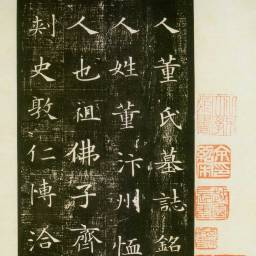 人董氏墓誌銘
人姓董汴州恤
人也祖佛子齊
刺史敦仁博洽